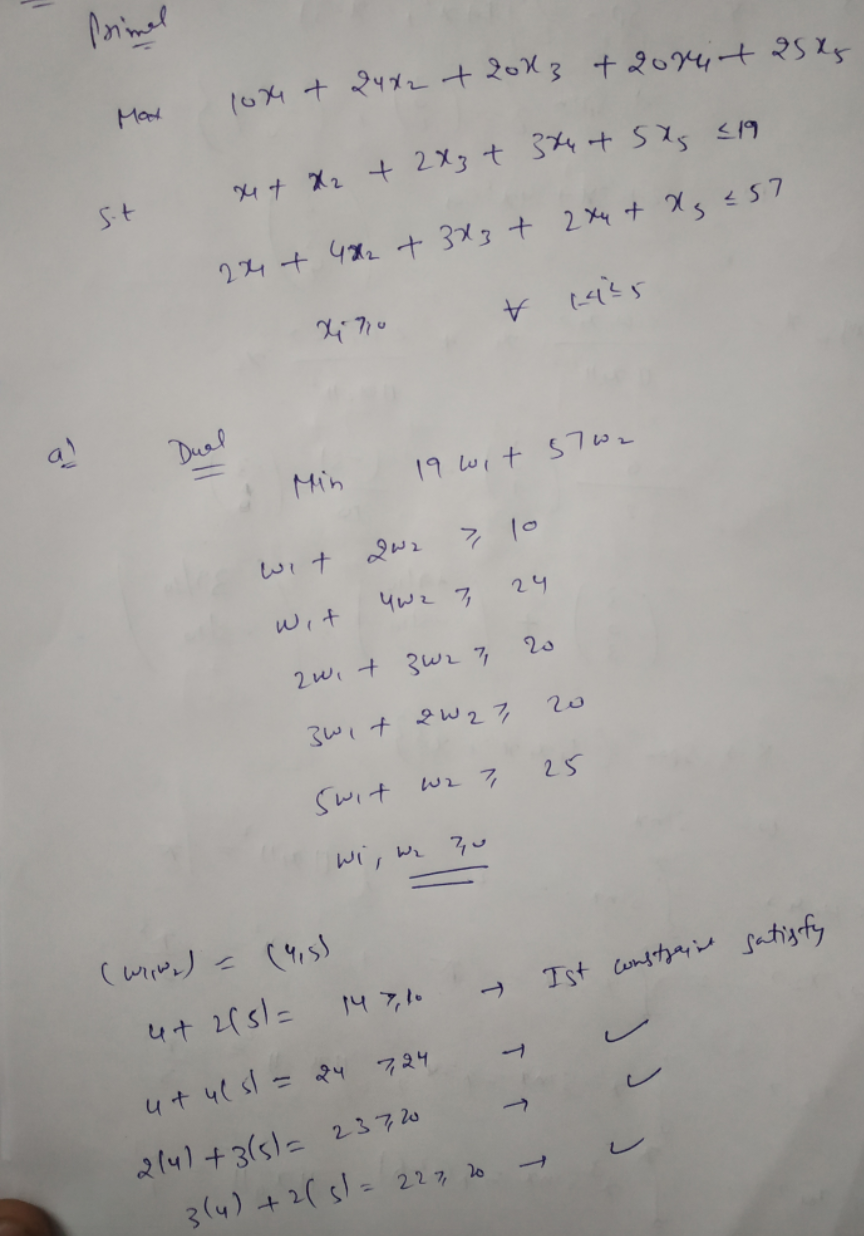 Primal
Max 10x₁ + 24x₂ + 20x₃ + 20x₄ + 25x₅
S.t x₁ + x₂ + 2x₃ + 3x₄ + 5x₅ ≤ 19
2x₁ + 4x₂ + 3x₃ + 2x₄ + x₅ ≤ 57
xᵢ ≥ 0 ∀ 1≤i≤5
a) Dual
Min 19w₁ + 57w₂
w₁ + 2w₂ ≥ 10
w₁ + 4w₂ ≥ 24
2w₁ + 3w₂ ≥ 20
3w₁ + 2w₂ ≥ 20
5w₁ + w₂ ≥ 25
w₁, w₂ ≥ 0
(w₁, w₂) = (4, 5)
4 + 2(5) = 14 ≥ 10 → Ist constraint satisfy
4 + 4(5) = 24 ≥ 24 → ✓
2(4) + 3(5) = 23 ≥ 20 → ✓
3(4) + 2(5) = 22 ≥ 20 → ✓